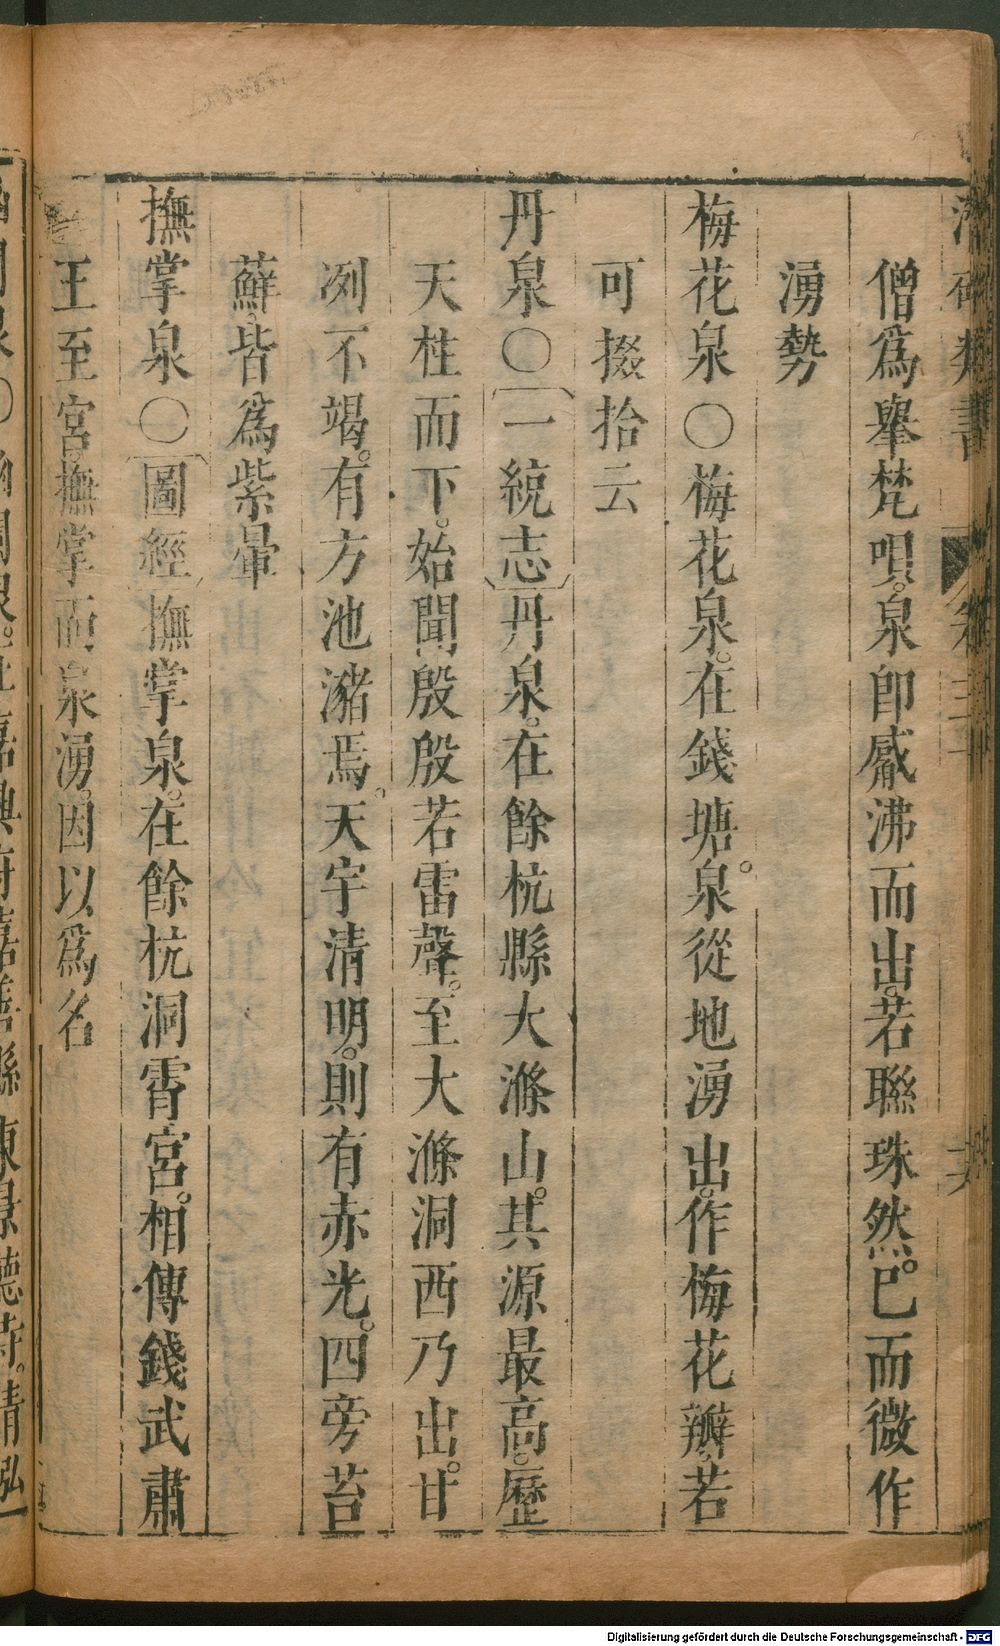 僧爲舉梵唄。泉卽觱沸而出。若聯珠然。已而微作
湧勢
梅花泉○梅花泉。在錢塘。泉從地湧出。作梅花瓣。若
可掇拾云
丹泉○〔一統志〕丹泉。在餘杭縣大滌山。其源最高。歷
天柱而下。始聞殷殷若雷聲。至大滌洞西乃出。甘
冽不竭。有方池瀦焉。天宇清明。則有赤光。四旁苔
蘚。皆爲紫暈
撫掌泉○〔圖經〕撫掌泉。在餘杭洞霄宮。相傳錢武肅
王至宮。撫掌而泉湧。因以爲名
Digitalisierung gefördert durch die Deutsche Forschungsgemeinschaft - DFG